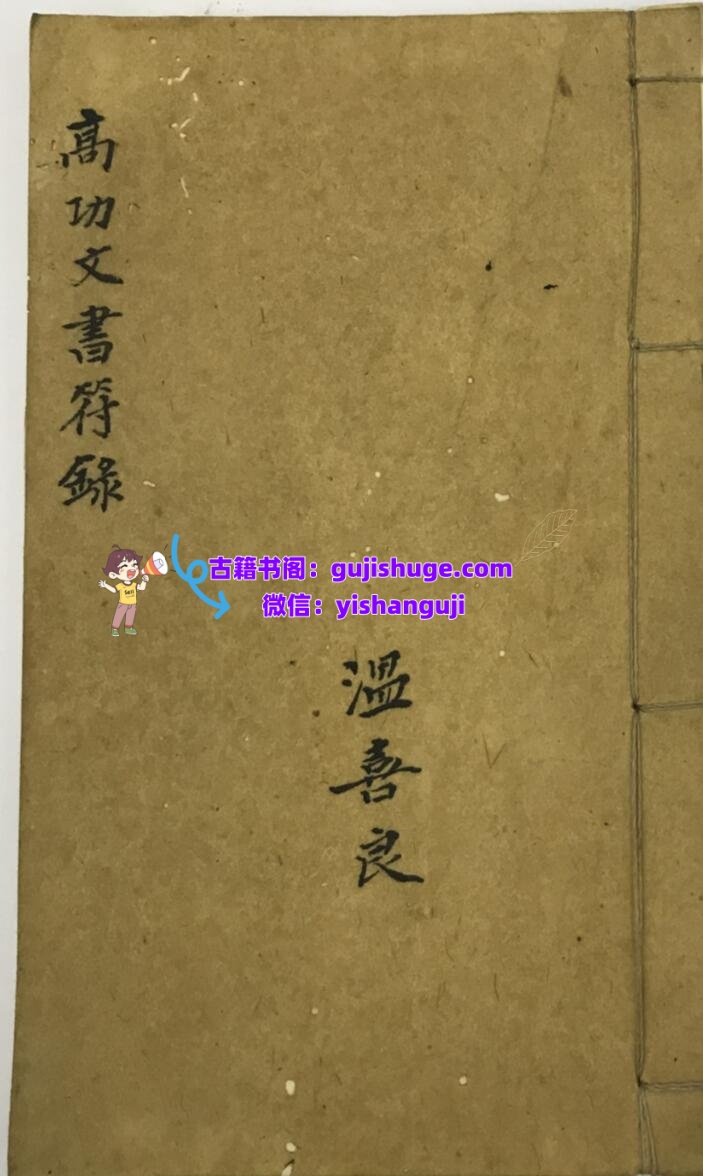 高功文書符錄
古籍书阁：gujishuge.com
微信：yishanguji
溫喜良